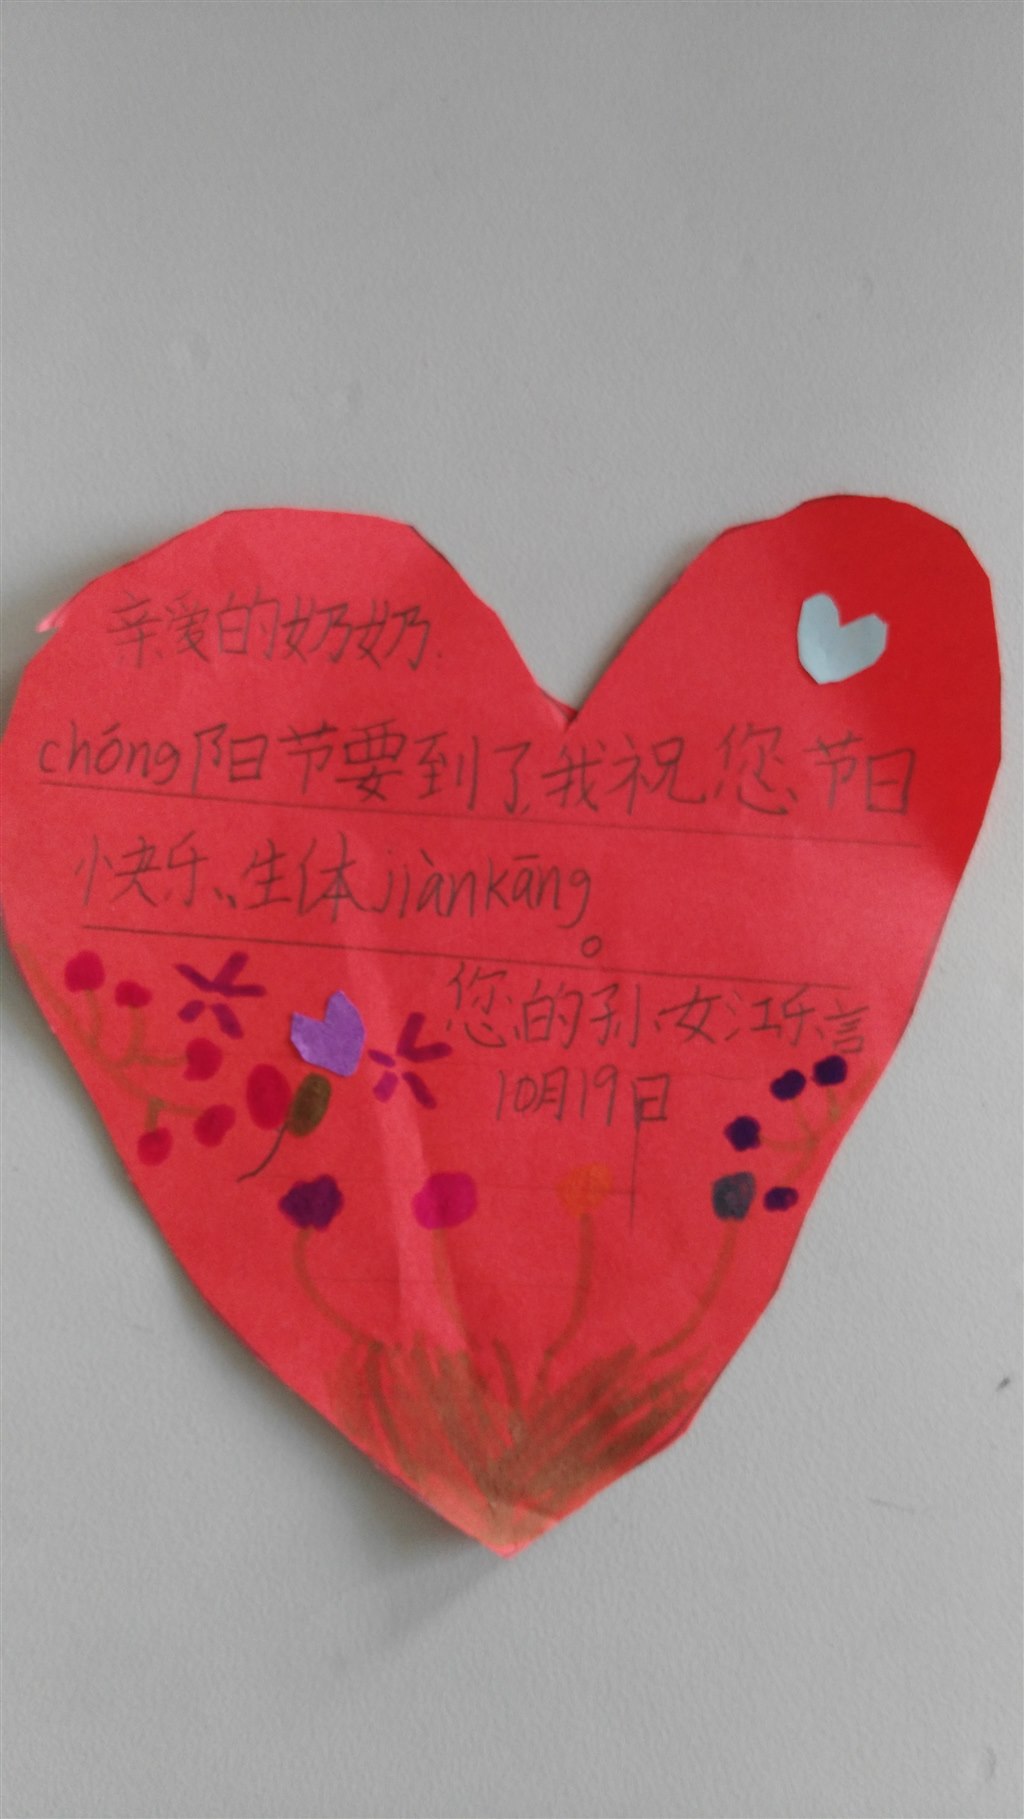 亲爱的奶奶.
chóng阳节要到了,我祝您节日
快乐、生体jiànkāng。
您的孙女江乐言
10月19日